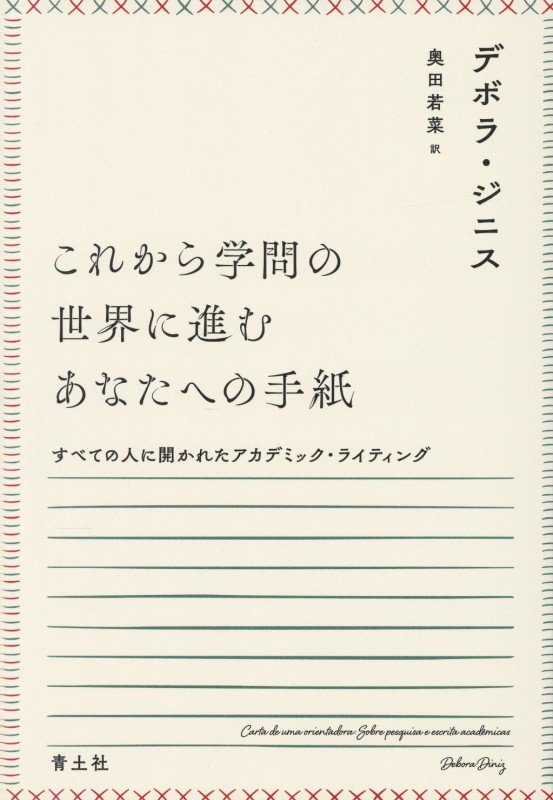 デボラ・ジニス
奥田若菜 訳
これから学問の
世界に進む
あなたへの手紙
すべての人に開かれたアカデミック・ライティング
Carta de uma orientadora: Sobre pesquisa e escrita acadêmicas
青土社
Debora Diniz